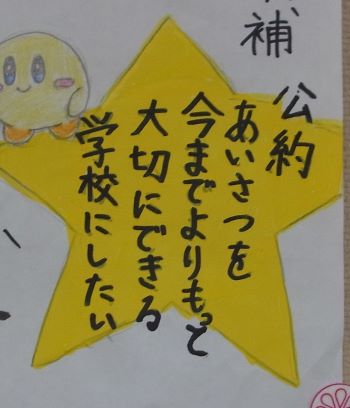 補
公約
あいさつを
今までよりもっと
大切にできる
学校にしたい